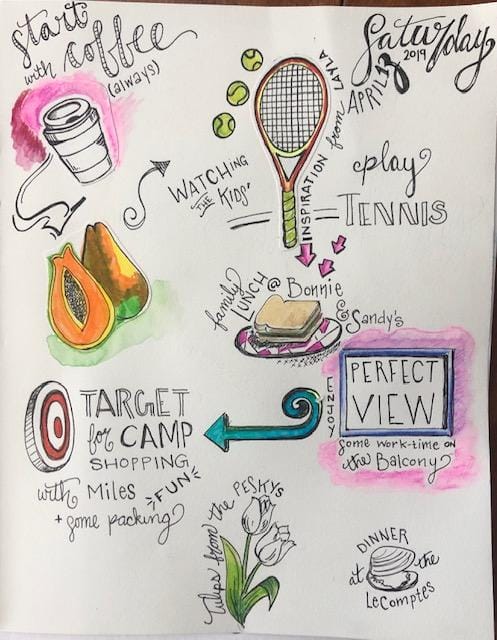 start
with coffee
(always)
Saturday
2019
APRIL 13
INSPIRATION from LAYLA
WATCHING
THE KIDS'
play
TENNIS
family
LUNCH @ Bonnie
& Sandy's
ENJOY
PERFECT
VIEW
some work-time on
the Balcony
TARGET
for CAMP
SHOPPING
with Miles
FUN
+ some packing
Tulips from the PESKYS
DINNER
at the
LeComptes